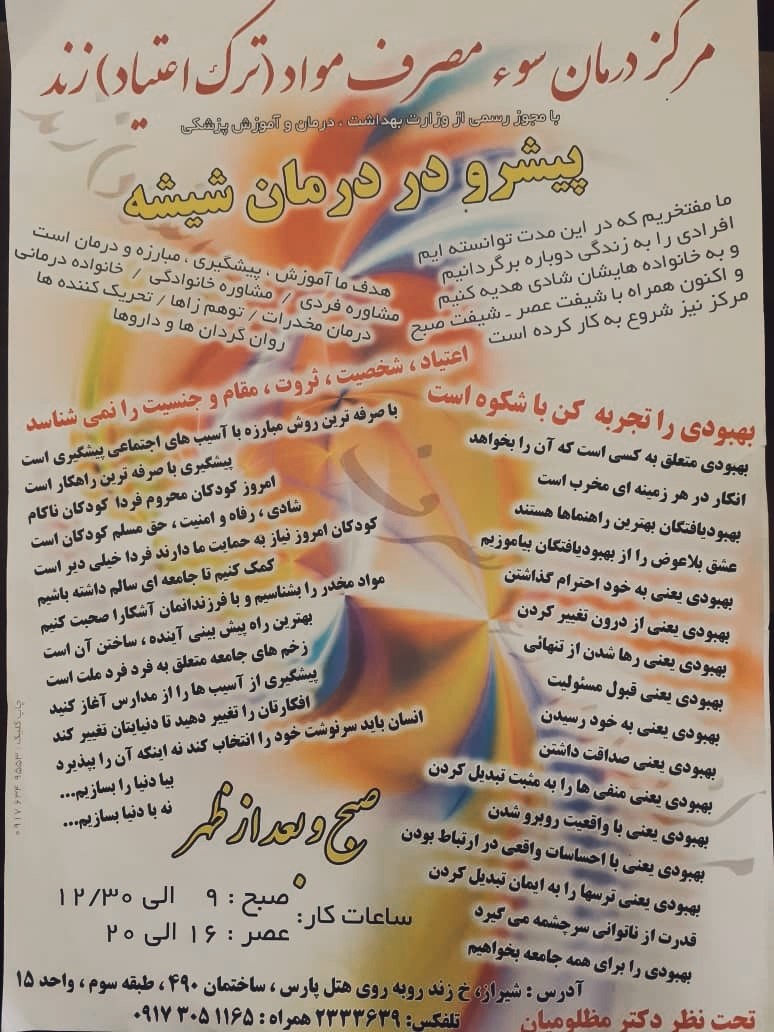 مرکز درمان سوء مصرف مواد (ترک اعتیاد) زند
با مجوز رسمی از وزارت بهداشت ، درمان و آموزش پزشکی
پیشرو در درمان شیشه
ما مفتخریم که در این مدت توانسته ایم
افرادی را به زندگی دوباره برگردانیم
و به خانواده هایشان شادی هدیه کنیم
و اکنون همراه با شیفت عصر ـ شیفت صبح
مرکز نیز شروع به کار کرده است
هدف ما آموزش ، پیشگیری ، مبارزه و درمان است
مشاوره فردی / مشاوره خانوادگی / خانواده درمانی
درمان مخدرات / توهم زاها / تحریک کننده ها
روان گردان ها و داروها
اعتیاد ، شخصیت ، ثروت ، مقام و جنسیت را نمی شناسد
بهبودی را تجربه کن با شکوه است
بهبودی متعلق به کسی است که آن را بخواهد
انکار در هر زمینه ای مخرب است
بهبودیافتگان بهترین راهنماها هستند
عشق بلاعوض را از بهبودیافتگان بیاموزیم
بهبودی یعنی به خود احترام گذاشتن
بهبودی یعنی از درون تغییر کردن
بهبودی یعنی رها شدن از تنهائی
بهبودی یعنی قبول مسئولیت
بهبودی یعنی به خود رسیدن
بهبودی یعنی صداقت داشتن
بهبودی یعنی منفی ها را به مثبت تبدیل کردن
بهبودی یعنی با واقعیت روبرو شدن
بهبودی یعنی با احساسات واقعی در ارتباط بودن
بهبودی یعنی ترسها را به ایمان تبدیل کردن
قدرت از ناتوانی سرچشمه می گیرد
بهبودی را برای همه جامعه بخواهیم
با صرفه ترین روش مبارزه با آسیب های اجتماعی پیشگیری است
پیشگیری با صرفه ترین راهکار است
امروز کودکان محروم فردا کودکان ناکام
شادی ، رفاه و امنیت ، حق مسلم کودکان است
کودکان امروز نیاز به حمایت ما دارند فردا خیلی دیر است
کمک کنیم تا جامعه ای سالم داشته باشیم
مواد مخدر را بشناسیم و با فرزندانمان آشکارا صحبت کنیم
بهترین راه پیش بینی آینده ، ساختن آن است
زخم های جامعه متعلق به فرد فرد ملت است
پیشگیری از آسیب ها را از مدارس آغاز کنید
افکارتان را تغییر دهید تا دنیایتان تغییر کند
انسان باید سرنوشت خود را انتخاب کند نه اینکه آن را بپذیرد
بیا دنیا را بسازیم...
نه با دنیا بسازیم...
صبح و بعد از ظهر
ساعات کار:
صبح : ۹ الی ۱۲/۳۰
عصر : ۱۶ الی ۲۰
آدرس : شیراز، خ زند روبه روی هتل پارس ، ساختمان ۴۹۰ ، طبقه سوم ، واحد ۱۵
تحت نظر دکتر مظلومیان
تلفکس: ۲۳۳۳۶۳۹ همراه : ۰۹۱۷ ۳۰۵ ۱۱۶۵
چاپ کلیک : ۰۹۱۷ ۶۳۴ ۹۵۵۳